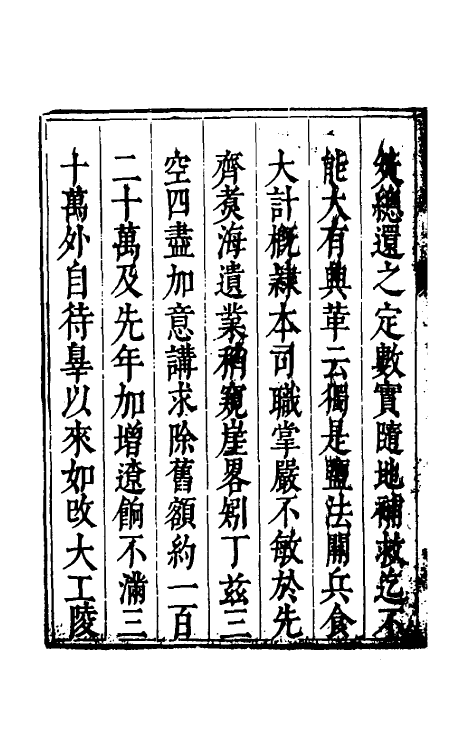 矣總還之定數實隨地補救迄不
能大有興革云獨是鹽法關兵食
大計槪隸本司職掌嚴不敏於先
齊煑海遺業稍窺崖畧矧丁兹三
空四盡加意講求除舊額約一百
二十萬及先年加增遼餉不滿三
十萬外自待辠以來如改大工陵